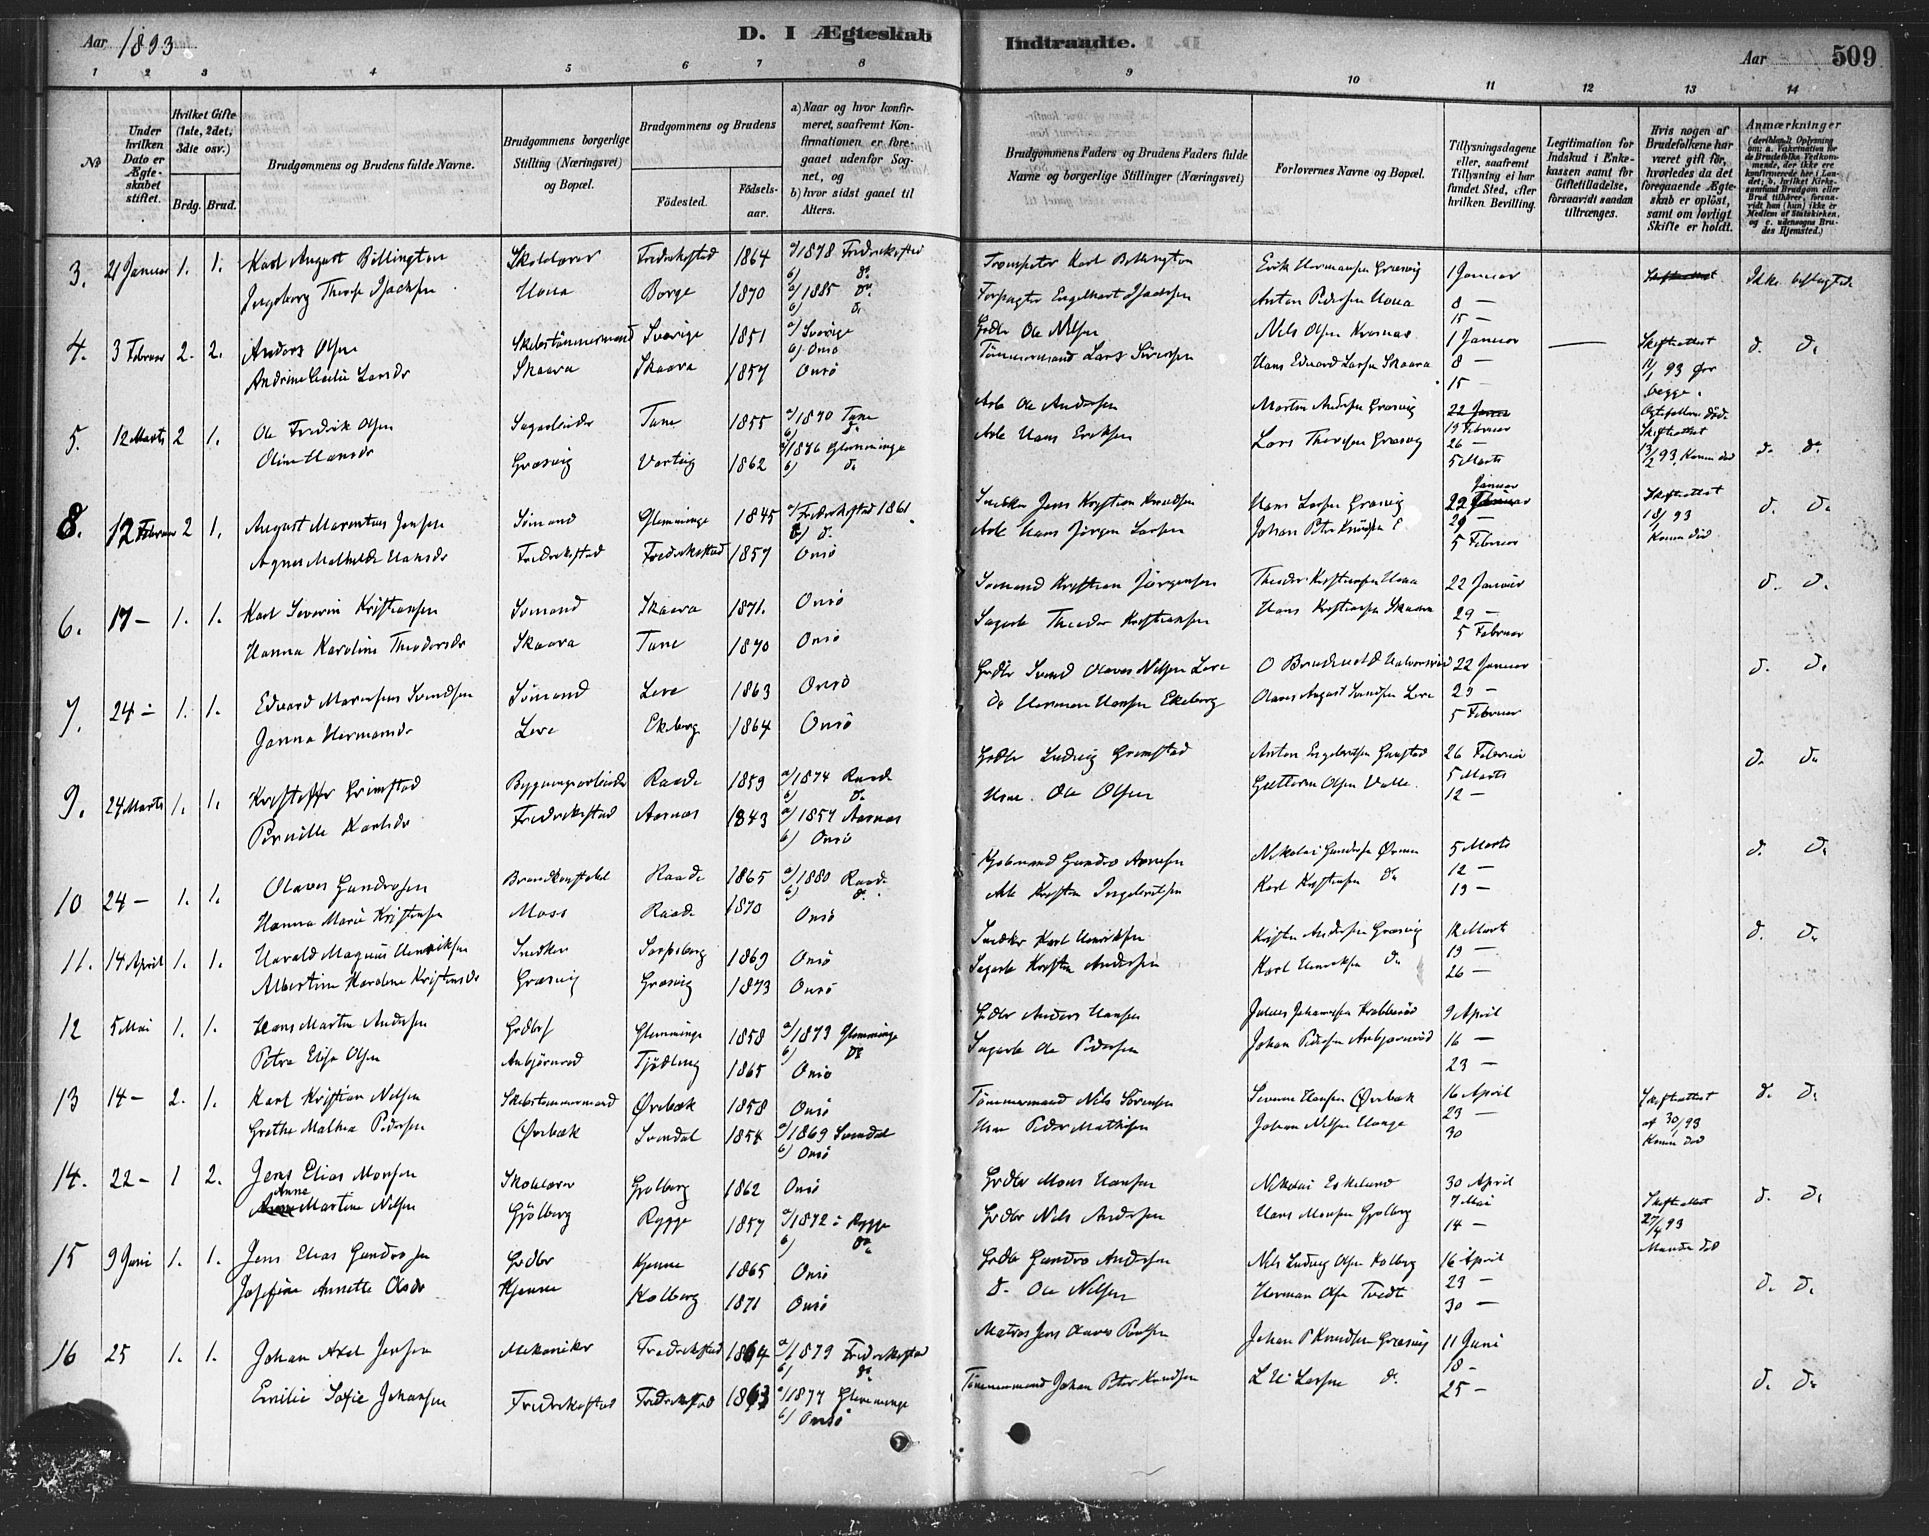 Aar 1893
D. I Ægteskab
Indtraadte.
Aar 509
1 2 3 4 5 6 7 8 9 10 11 12 13 14
No
Under hvilken Dato er Ægteskabet stiftet.
Hvilket Gifte (1ste, 2det, 3die osv.)
Brdg. Brud.
Brudgommens og Brudens fulde Navne.
Brudgommens borgerlige Stilling (Næringsvei) og Bopæl.
Brudgommens og Brudens
Fødested.
Fødselsaar.
a) Naar og hvor konfirmeret, saafremt Konfirmationen er foregaaet udenfor Sognet, og
b) hvor sidst gaaet til Alters.
Brudgommens Faders og Brudens Faders fulde Navne og borgerlige Stillinger (Næringsvei)
Forlovernes Navne og Bopæl.
Tillysningsdagene eller, saafremt Tillysning ei har fundet Sted, efter hvilken Bevilling.
Legitimation for Indskud i Enkekassen samt for Giftetilladelse, forsaavidt saadan tiltrænges.
Hvis nogen af Brudefolkene har været gift før, hvorledes da det foregaaende Ægteskab er opløst, samt om lovligt Skifte er holdt.
Anmærkninger
3. 21 Januar 1. 1. Karl August Billington Skolelærer Fredrikstad 1864 a/1878 Fredrikstad b) do Trompeter Karl Billington Erik Hermansen Græsvig 1 Januar Ikke beslægtede
Ingeborg Thore Isachsen Huna Borge 1870 a/1885 do b) do Forpagter Engelhart Isachsen Anton Pedersen Huna 8 — 15 —
4. 3 Februar 2. 2. Anders Olsen Skibstømmermand Sverige 1851 a/ Sverige b) Onsö Gdbr Ole Nilsen Nils Olsen 1 Januar — Skifteattest d. d.
Andrine Cecilie Larsdr Skaara Skaara 1857 Onsö Tømmermand Lars Hans Edvard Larsen Skaara 8 — 15 — 11/1 93 for begge.
5. 12 Marts 2 1. Ole Fredrik Olsen Sagarbeider Tune 1855 a/1870 Tune b) d. Arb Ole Andersen Martin Andersen Græsvig 19 Februar Skifteattest d. d.
Oline Hansdr Græsvig Varteig 1862 a/1876 Glemminge b) d. Arb Hans Eriksen Lars Græsvig 26 — 5 Marts 13/2 93. Konen död
8. 12 Februar 2 1. August Marentius Jensen Sömand Glemminge 1845 a/ Fredrikstad 1861. b) d. Snedker Jens Kristian Knudsen Hans Larsen Græsvig 22 Januar Skifteattest d. d.
Agnes Mathilde Hansdr Fredrikstad Fredrikstad 1857 Onsö Arb Hans Jörgen Larsen Johan Peter Knudsen 29 — 5 Februar 18/ 93 Konen död
6. 17 — 1. 1. Karl Severin Kristiansen Sömand Skaara 1871. Onsö Sömand Kristian Jörgensen Theodor Kristiansen Huna 22 Januar d. d.
Hanna Karoline Theodorsdr Skaara Tune 1870 Onsö Sagarb Theodor Kristiansen Hans Kristiansen Skaara 29 — 5 Februar
7. 24 — 1. 1. Edvard Marensius Svendsen Sömand Lere 1863 Onsö Gdbr Svend Olaves Nilsen Lere O Halvorsrød 22 Januar d. d.
Janna Hermansdr Lere Ekeberg 1864 Onsö do Herman Hansen Ekeberg Olaves August Svendsen Lere 29 — 5 Februar
9. 24 Marts 1. 1. Kristoffer Grimstad Bygningsarbeider Raade 1859 a/1874 Raade b) d. Gdbr Ludvig Grimstad Anton Engebretsen Grimstad 26 Februar d. d.
Pernille Karlsdr Fredrikstad Aasnes 1843 a/1857 Aasnes b) Onsö Hsm. Ole Olsen Guttorm Olsen Valle. 5 Marts 12 —
10 24 — 1. 1. Olaves Gundersen Brandkonstabel Raade 1865 a/1880 Raade b) d. Gundro Arnesen Nikolai Gundersen 5 Marts d. d.
Hanna Marie Kristensen Moss Raade 1870 Onsö Arb Kristen Ingebretsen Karl Kristensen do 12 — 19 —
11. 14 April 1. 1. Harald Magnus Henriksen Snedker Sarpsborg 1869 Onsö Snedker Karl Henriksen Kristen Andersen Græsvig 12 Marts d. d.
Albertine Karoline Kristensdr Græsvig Græsvig 1873 Onsö Sagarb Kristen Andersen Karl Henriksen do 19 — 26 —
12 5 Mai 1. 1. Hans Martin Andersen Gdbr Glemminge 1858 a/1873 Glemminge b) do Gdbr Anders Hansen Julius Johannesen Krabberød 9 April
Petra Elise Olsen Anbjörnrød Tjødling 1865 Onsö Sagarb Ole Pedersen Johan Pedersen Anbjørnrød 16 — 23 —
13 14 — 2. 1. Karl Kristian Nilsen Skibstømmermand Ørebæk 1858 Onsö Tømmermand Nils Sörensen Severin Hansen Ørebæk 16 April Skifteattest d. d.
Grethe Mathea Pedersen Ørebæk Svindal 1854 a/1869 Svindal b) Onsö Hsm Peder Mathisen Johan Nilsen Hauge 23 — 30 af 30/ 93 Konen död
14. 22 — 1 2. Jens Elias Monsen Skolelærer Gjølberg 1862 Onsö Gdbr Mons Hansen Nikolai Eskelund 30 April d. d.
Anne Martine Nilsen Gjølberg Rygge 1857 a/1872 i Rygge b) do Gdbr Nils Andersen Hans Monsen Gjølberg 7 Mai 14 — Skifteattest 27/4 93 Manden död
15 9 Juni 1. 1. Jens Elias Gundersen Gdbr Kjenne 1865 Onsö Gdbr Gundro Andersen Nils Ludvig Olsen Kolberg 16 April
Josefine Annette Olsdr Kjenne Kolberg 1871 Onsö d. Ole Nilsen Herman Olsen Tvedt 23 — 30 — d. d.
16 25 1. 1. Johan Axel Jensen Mekaniker Fredrikstad 1864 a/1879 Fredrikstad b) do Matros Jens Olaves Johan P Knudsen Græsvig 11 Juni
Emilie Sofie Johansen Fredrikstad Fredrikstad 1863 a/1877 Glemminge b) Onsö Tømmermand Johan Peter Knudsen L H Larsen d. 18 — 25 — d. d.